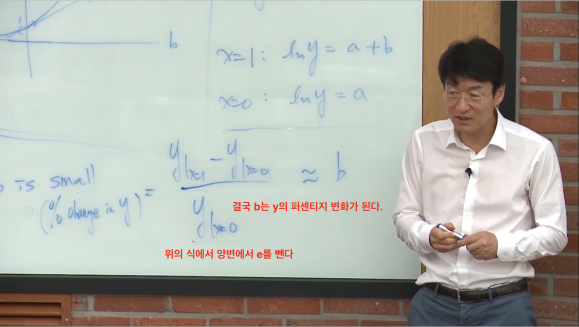 b
x=1 : ln y = a + b
x=0 : ln y = a
is small
(% change in y) = (y|x=1 − y|x=0) / y|x=0 ≈ b
결국 b는 y의 퍼센티지 변화가 된다.
위의 식에서 양변에서 e를 뺀다